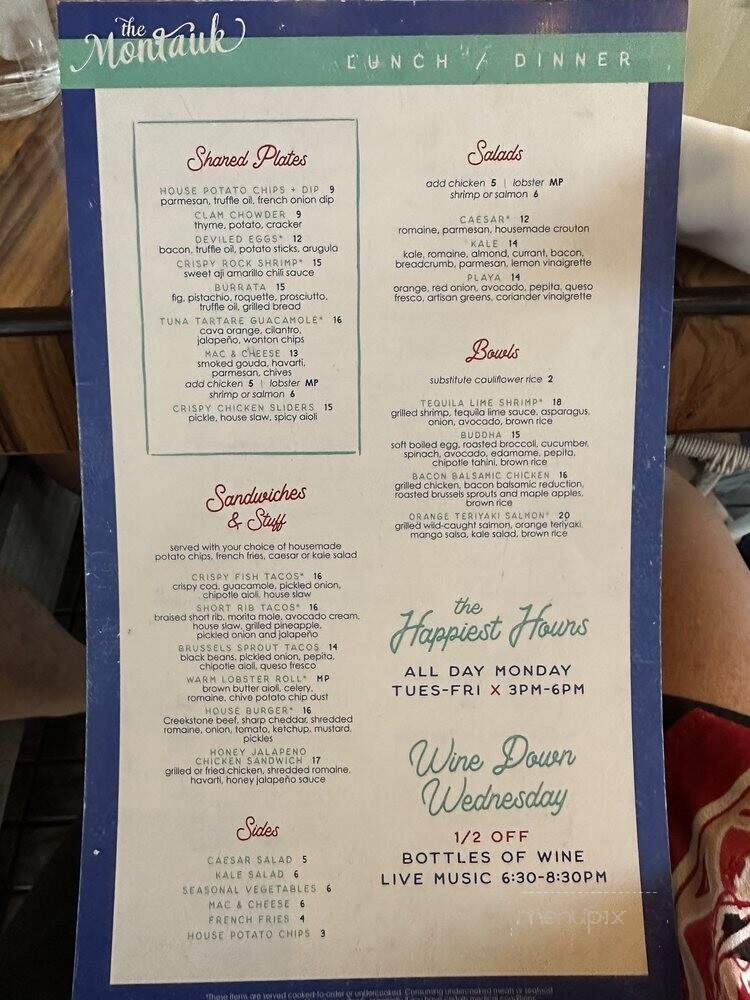 the
Montauk
LUNCH / DINNER
Shared Plates
HOUSE POTATO CHIPS + DIP 9
parmesan, truffle oil, french onion dip
CLAM CHOWDER 9
thyme, potato, cracker
DEVILED EGGS* 12
bacon, truffle oil, potato sticks, arugula
CRISPY ROCK SHRIMP* 15
sweet aji amarillo chili sauce
BURRATA 15
fig, pistachio, roquette, prosciutto,
truffle oil, grilled bread
TUNA TARTARE GUACAMOLE* 16
cava orange, cilantro,
jalapeño, wonton chips
MAC & CHEESE 13
smoked gouda, havarti,
parmesan, chives
add chicken 5 | lobster MP
shrimp or salmon 6
CRISPY CHICKEN SLIDERS 15
pickle, house slaw, spicy aioli
Sandwiches
& Stuff
served with your choice of housemade
potato chips, french fries, caesar or kale salad
CRISPY FISH TACOS* 16
crispy cod, guacamole, pickled onion,
chipotle aioli, house slaw
SHORT RIB TACOS* 16
braised short rib, morita mole, avocado cream,
house slaw, grilled pineapple,
pickled onion and jalapeño
BRUSSELS SPROUT TACOS 14
black beans, pickled onion, pepita,
chipotle aioli, queso fresco
WARM LOBSTER ROLL* MP
brown butter aioli, celery,
romaine, chive potato chip dust
HOUSE BURGER* 16
Creekstone beef, sharp cheddar, shredded
romaine, onion, tomato, ketchup, mustard,
pickles
HONEY JALAPENO
CHICKEN SANDWICH 17
grilled or fried chicken, shredded romaine,
havarti, honey jalapeño sauce
Sides
CAESAR SALAD 5
KALE SALAD 6
SEASONAL VEGETABLES 6
MAC & CHEESE 6
FRENCH FRIES 4
HOUSE POTATO CHIPS 3
Salads
add chicken 5 | lobster MP
shrimp or salmon 6
CAESAR* 12
romaine, parmesan, housemade crouton
KALE 14
kale, romaine, almond, currant, bacon,
breadcrumb, parmesan, lemon vinaigrette
PLAYA 14
orange, red onion, avocado, pepita, queso
fresco, artisan greens, coriander vinaigrette
Bowls
substitute cauliflower rice 2
TEQUILA LIME SHRIMP* 18
grilled shrimp, tequila lime sauce, asparagus,
onion, avocado, brown rice
BUDDHA 15
soft boiled egg, roasted broccoli, cucumber,
spinach, avocado, edamame, pepita,
chipotle tahini, brown rice
BACON BALSAMIC CHICKEN 16
grilled chicken, bacon balsamic reduction,
roasted brussels sprouts and maple apples,
brown rice
ORANGE TERIYAKI SALMON* 20
grilled wild-caught salmon, orange teriyaki,
mango salsa, kale salad, brown rice
the
Happiest Hours
ALL DAY MONDAY
TUES-FRI X 3PM-6PM
Wine Down
Wednesday
1/2 OFF
BOTTLES OF WINE
LIVE MUSIC 6:30-8:30PM
menupix
*These items are served cooked-to-order or undercooked. Consuming undercooked meats or seafood